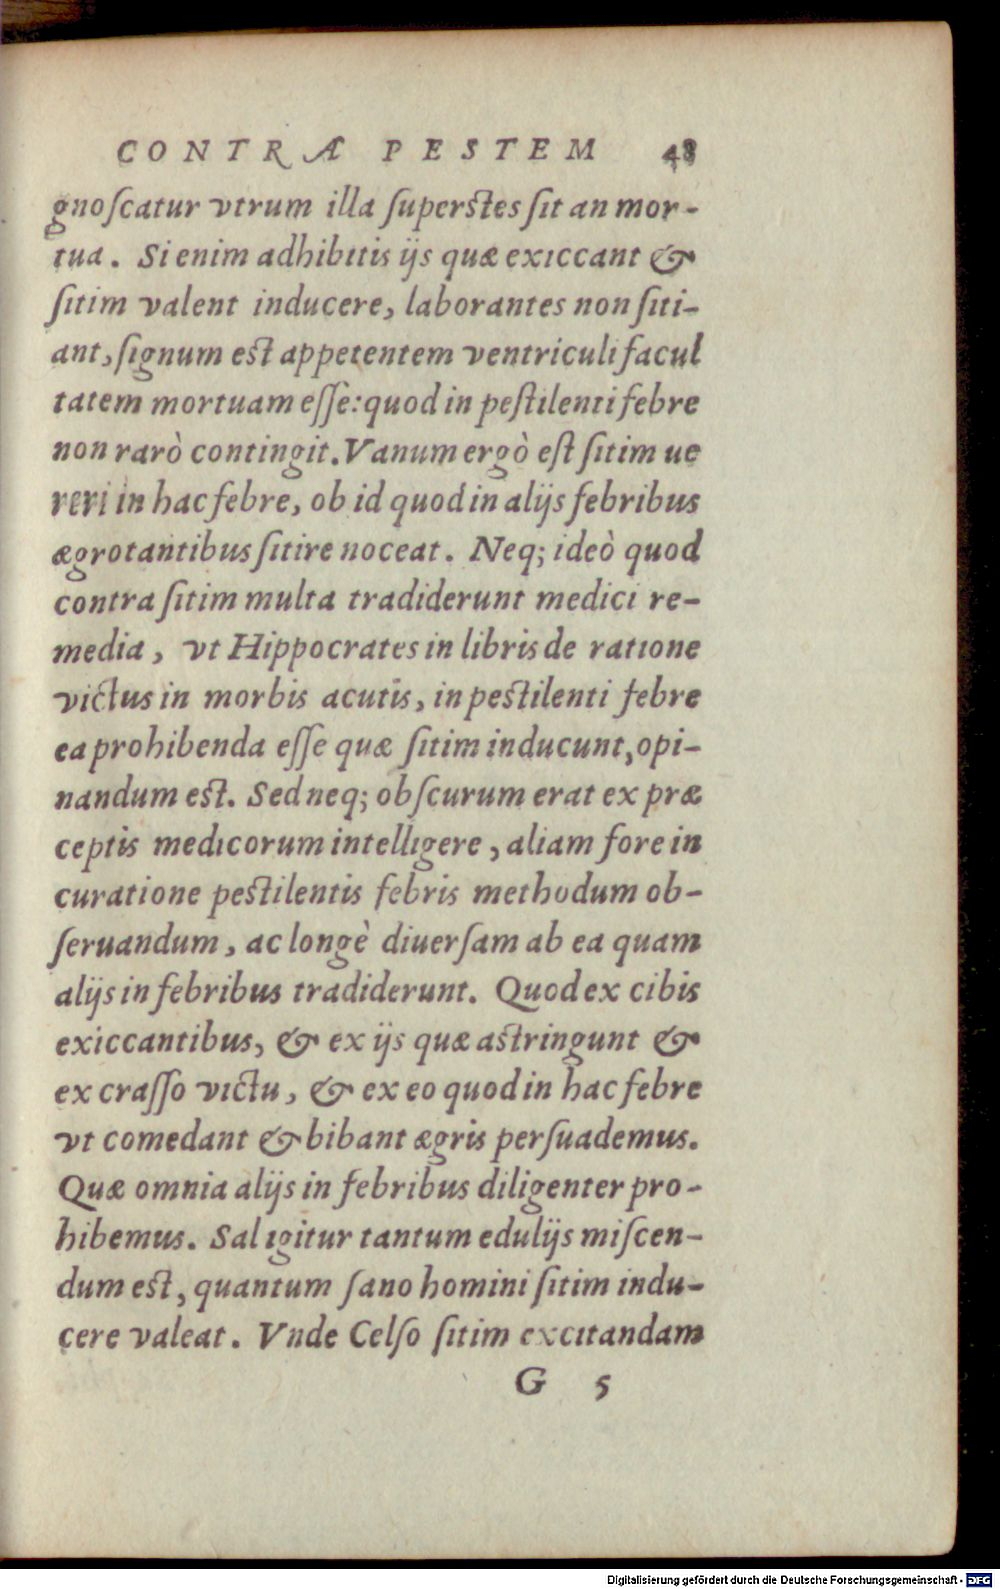 CONTRA PESTEM 48
gnoſcatur vtrum illa ſuperſtes ſit an mor-
tua. Si enim adhibitis ijs quæ exiccant &
ſitim valent inducere, laborantes non ſiti-
ant, ſignum eſt appetentem ventriculi facul
tatem mortuam eſſe: quod in peſtilenti febre
non rarò contingit. Vanum ergò eſt ſitim ue
reri in hac febre, ob id quod in alijs febribus
ægrotantibus ſitire noceat. Neq; ideò quod
contra ſitim multa tradiderunt medici re-
media, vt Hippocrates in libris de ratione
victus in morbis acutis, in peſtilenti febre
ea prohibenda eſſe quæ ſitim inducunt, opi-
nandum eſt. Sed neq; obſcurum erat ex præ
ceptis medicorum intelligere, aliam fore in
curatione peſtilentis febris methodum ob-
ſeruandum, ac longè diuerſam ab ea quam
alijs in febribus tradiderunt. Quod ex cibis
exiccantibus, & ex ijs quæ aſtringunt &
ex craſſo victu, & ex eo quod in hac febre
vt comedant & bibant ægris perſuademus.
Quæ omnia alijs in febribus diligenter pro-
hibemus. Sal igitur tantum edulijs miſcen-
dum eſt, quantum ſano homini ſitim indu-
cere valeat. Vnde Celſo ſitim excitandam
G 5
Digitalisierung gefördert durch die Deutsche Forschungsgemeinschaft - DFG